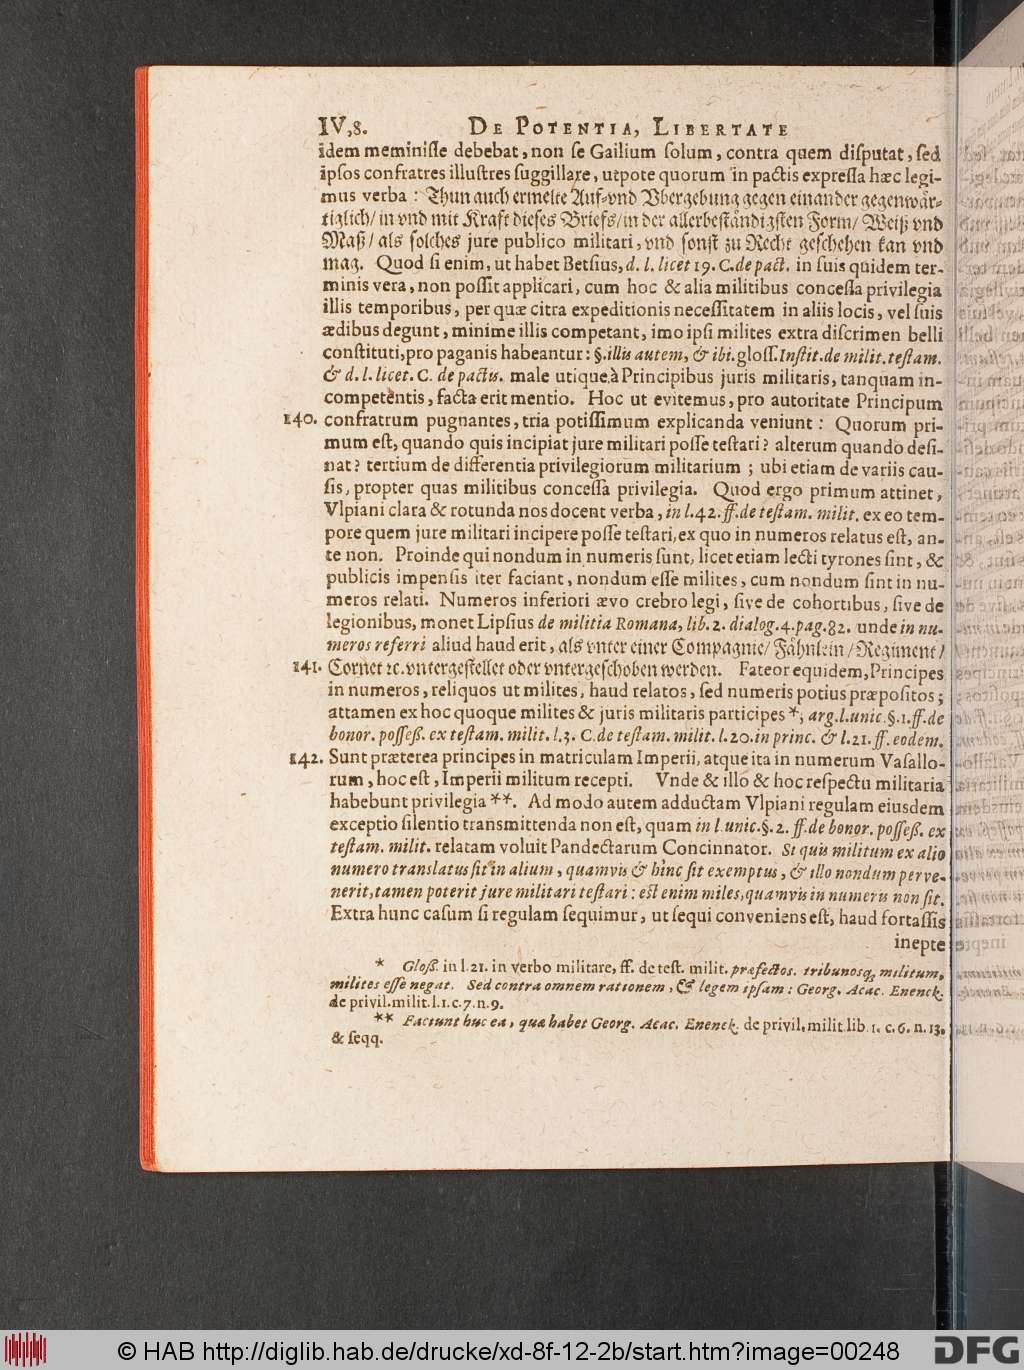 IV, 8. DE POTENTIA, LIBERTATE
idem meminiſſe debebat, non ſe Gailium ſolum, contra quem diſputat, ſed
ipſos confratres illuſtres ſuggillare, utpote quorum in pactis expreſſa hæc legi-
mus verba: Thun auch ermelte Auf- vnd Vbergebung gegen einander gegenwär-
tiglich/ in vnd mit Kraft dieſes Briefs/ in der allerbeſtändigſten Form/ Weiß vnd
Maß/ als ſolches jure publico militari, vnd ſonſt zu Recht geſchehen kan vnd
mag. Quod ſi enim, ut habet Betſius, d. l. licet 19. C. de pact. in ſuis quidem ter-
minis vera, non poſſit applicari, cum hoc & alia militibus conceſſa privilegia
illis temporibus, per quæ citra expeditionis neceſſitatem in aliis locis, vel ſuis
ædibus degunt, minime illis competant, imo ipſi milites extra diſcrimen belli
conſtituti, pro paganis habeantur: §. illis autem, & ibi. gloſſ. Inſtit. de milit. teſtam.
& d. l. licet. C. de pactis. male utique à Principibus juris militaris, tanquam in-
competentis, facta erit mentio. Hoc ut evitemus, pro autoritate Principum
140. confratrum pugnantes, tria potiſſimum explicanda veniunt: Quorum pri-
mum eſt, quando quis incipiat jure militari poſſe teſtari? alterum quando deſi-
nat? tertium de differentia privilegiorum militarium; ubi etiam de variis cau-
ſis, propter quas militibus conceſſa privilegia. Quod ergo primum attinet,
Vlpiani clara & rotunda nos docent verba, in l. 42. ff. de teſtam. milit. ex eo tem-
pore quem jure militari incipere poſſe teſtari, ex quo in numeros relatus eſt, an-
te non. Proinde qui nondum in numeris ſunt, licet etiam lecti tyrones ſint, &
publicis impenſis iter faciant, nondum eſſe milites, cum nondum ſint in nu-
meros relati. Numeros inferiori ævo crebro legi, ſive de cohortibus, ſive de
legionibus, monet Lipſius de militia Romana, lib. 2. dialog. 4. pag. 82. unde in nu-
meros referri aliud haud erit, als vnter einer Compagnie/ Fähnlein/ Regiment/
141. Cornet ꝛc. vntergeſtellet oder vntergeſchoben werden. Fateor equidem, Principes
in numeros, reliquos ut milites, haud relatos, ſed numeris potius præpoſitos;
attamen ex hoc quoque milites & juris militaris participes *, arg. l. unic. §. 1. ff. de
bonor. poſſeß. ex teſtam. milit. l. 3. C. de teſtam. milit. l. 20. in princ. & l. 21. ff. eodem.
142. Sunt præterea principes in matriculam Imperii, atque ita in numerum Vaſallo-
rum, hoc eſt, Imperii militum recepti. Vnde & illo & hoc reſpectu militaria
habebunt privilegia **. Ad modo autem adductam Vlpiani regulam eiusdem
exceptio ſilentio transmittenda non eſt, quam in l. unic. §. 2. ff. de bonor. poſſeß. ex
teſtam. milit. relatam voluit Pandectarum Concinnator. Si quis militum ex alio
numero translatus ſit in alium, quamvis & hinc ſit exemptus, & illo nondum perve-
nerit, tamen poterit jure militari teſtari: eſt enim miles, quamvis in numeris non ſit.
Extra hunc caſum ſi regulam ſequimur, ut ſequi conveniens eſt, haud fortaſſis
inepte
* Gloß. in l. 21. in verbo militare, ff. de teſt. milit. præfectos. tribunosq; militum,
milites eſſe negat. Sed contra omnem rationem, & legem ipſam: Georg. Acac. Enenck.
de privil. milit. l. 1. c. 7. n. 9.
** Faciunt huc ea, quæ habet Georg. Acac. Enenck. de privil. milit lib. 1. c. 6. n. 13.
& ſeqq.
© HAB http://diglib.hab.de/drucke/xd-8f-12-2b/start.htm?image=00248
DFG